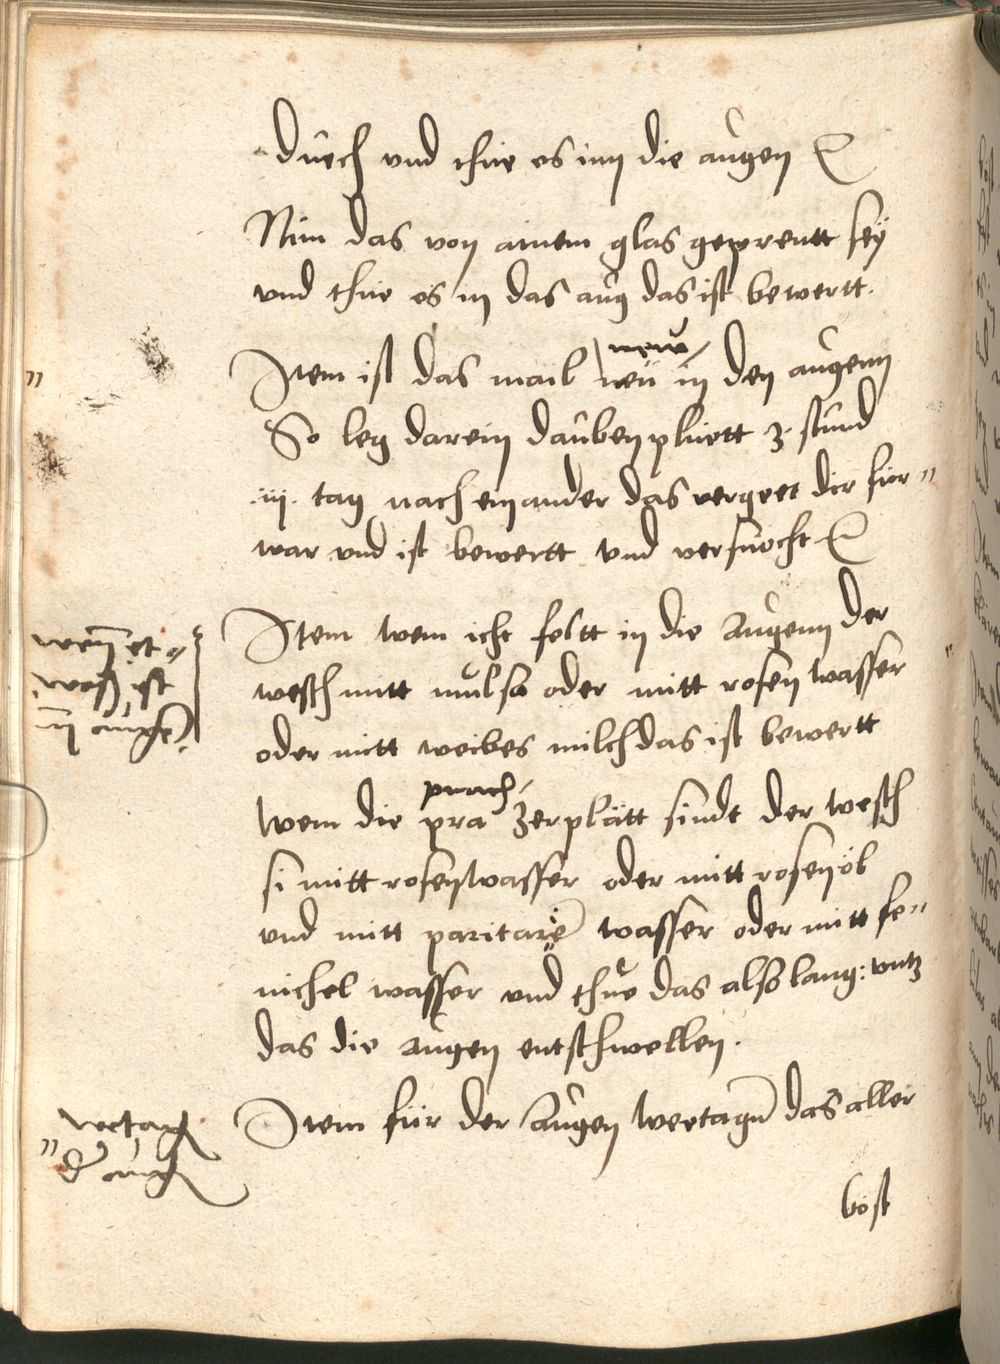 duech vnd thue es inn die augen
Nim das von ainem glas geprentt seÿ
vnd thue es in das aug das ist bewertt.
new
Item ist das mail neü in den augenn
So leg darein daubenpluett 3. stund
.iij. tag nach einander das vergeet dir fur"
war vnd ist bewertt vnd versuocht
Item wem icht feltt in die Augenn der
wesch mitt mulsa oder mitt rosen wasser
oder mitt weibes milch das ist bewertt
wem die pra zerplätt sindt der wesch
si mitt rosenwasser oder mitt rosenöl
vnd mitt paritarie wasser oder mitt fe"
nichel wasser vnd thue das also lang: vntz
das die augen entschwellen.
Item für der Augen weetagn das aller
böst
wenn et
was ist
in augen
wetag
d augen